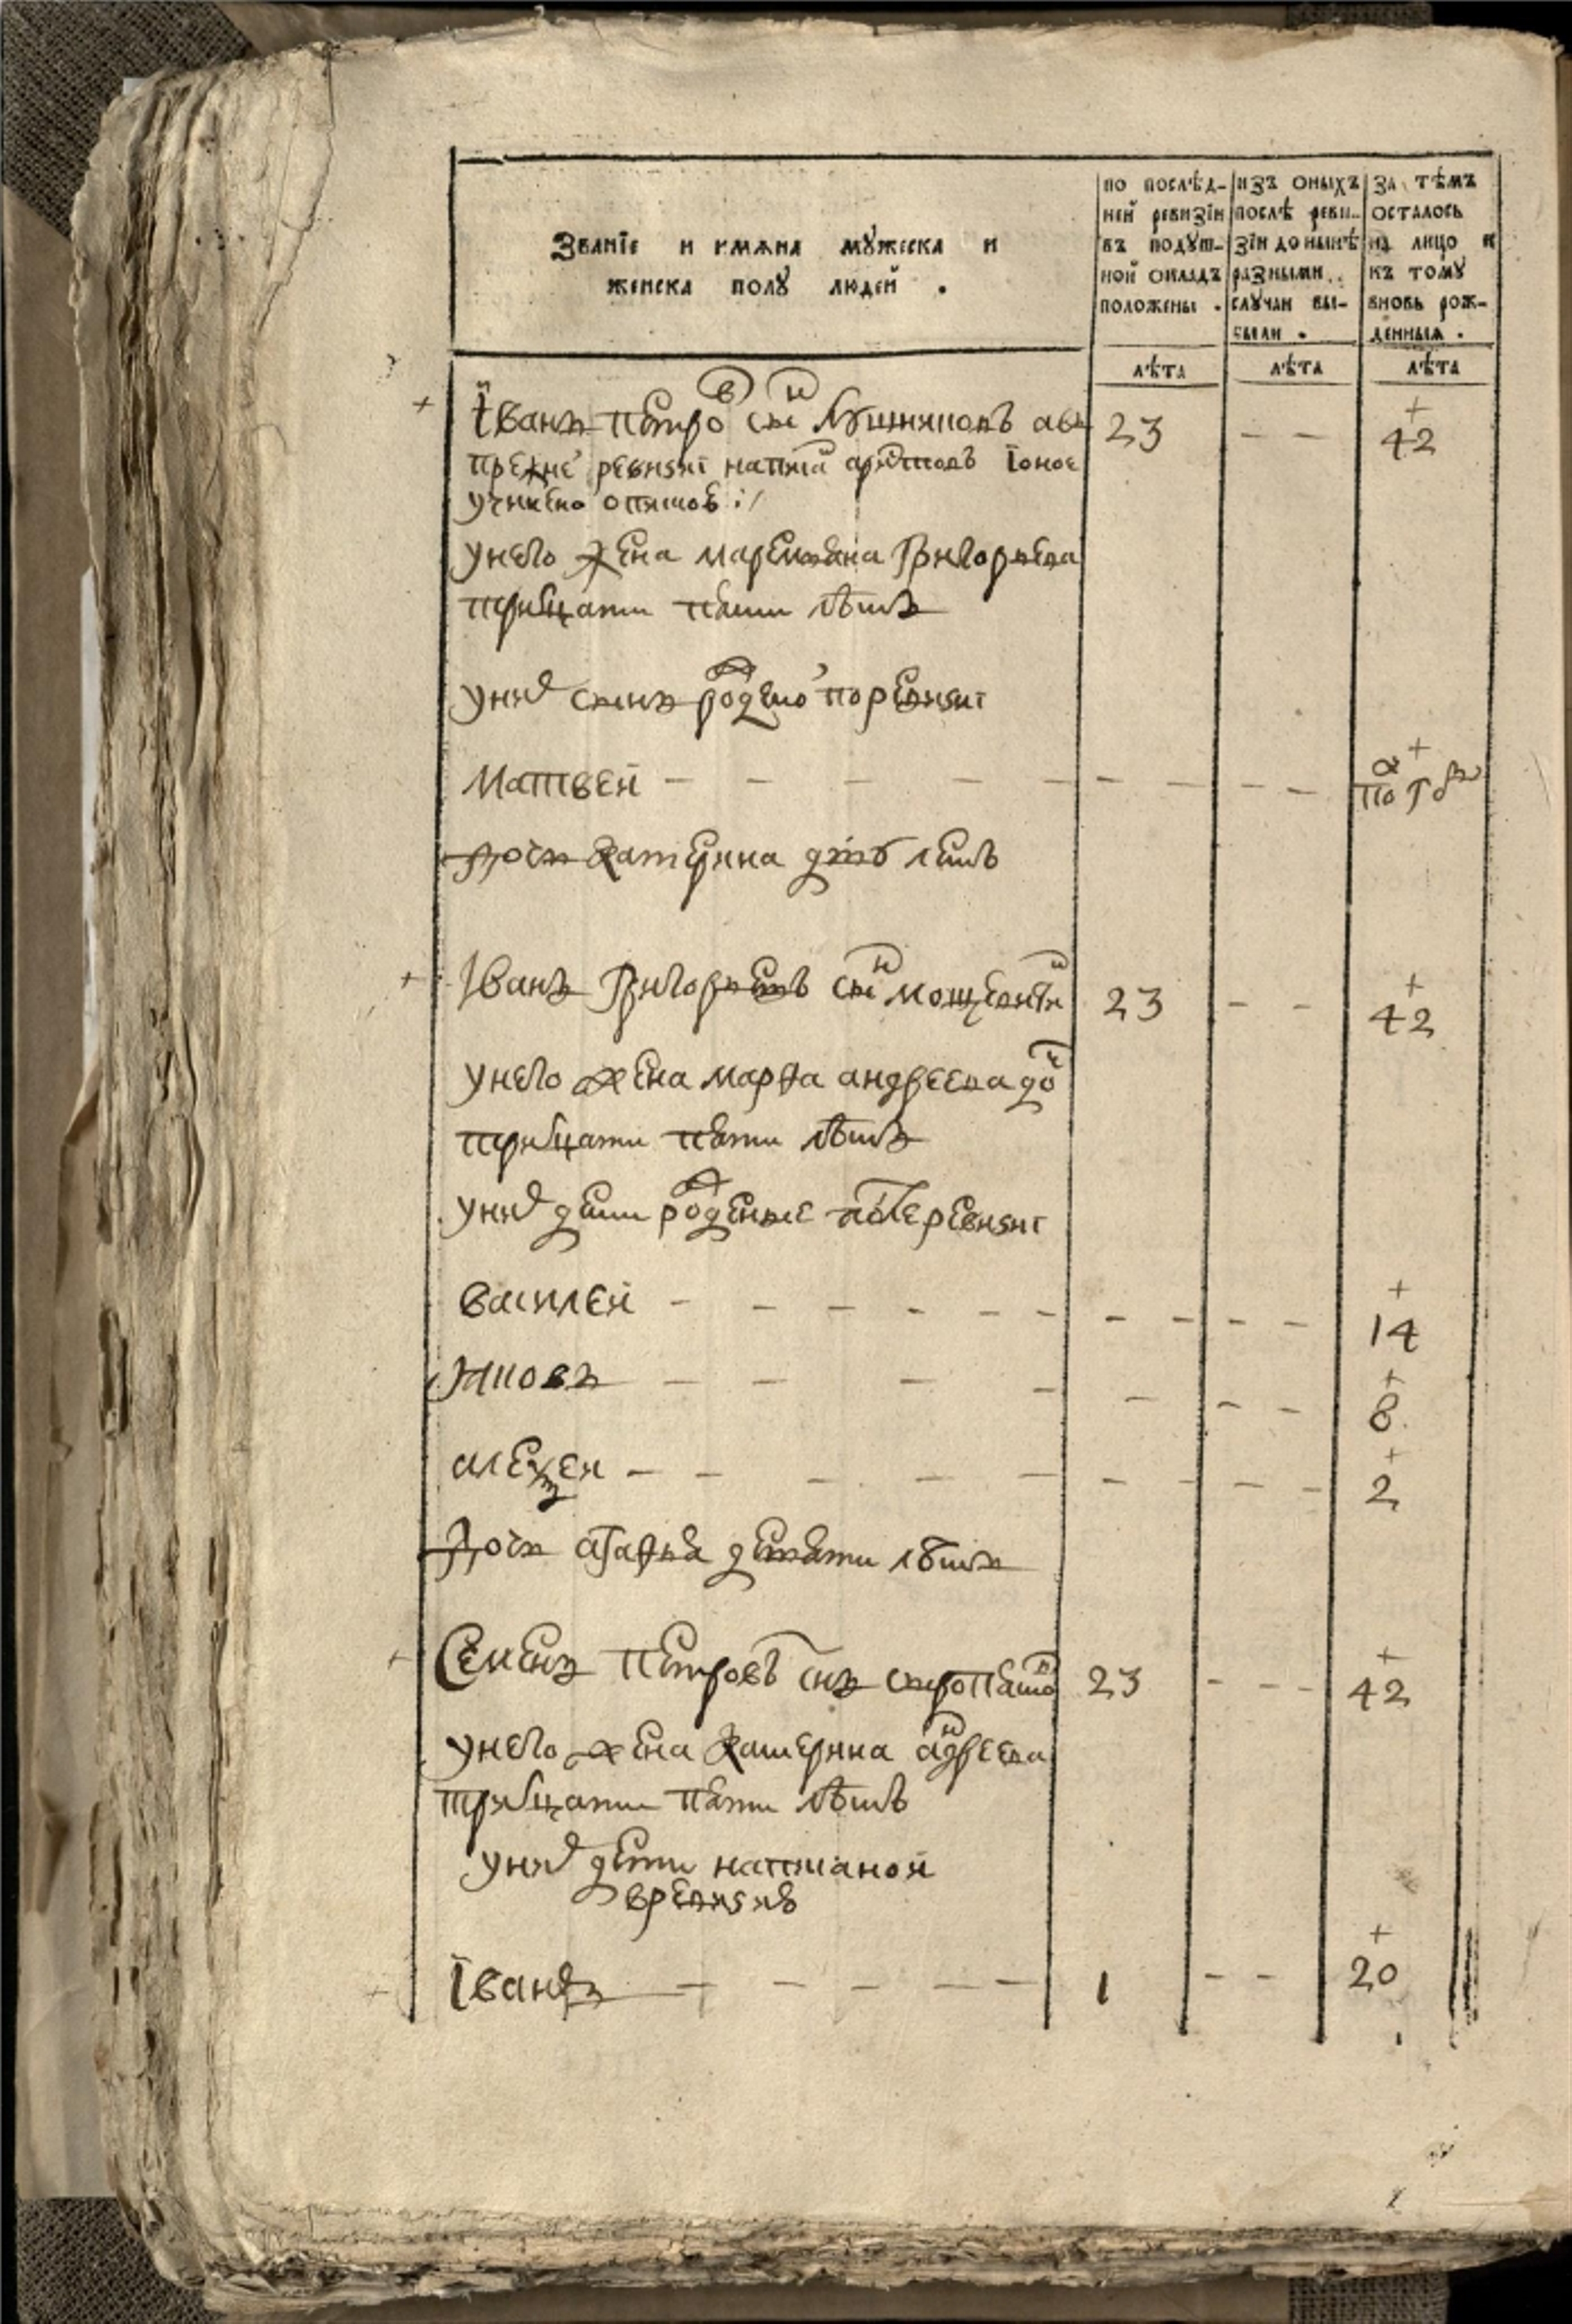 Званїе и имѧна мꙋжеска и
женска полꙋ людей .
по послѣд-
ней ревизїи
въ подꙋш-
ной окладъ
положены .
изъ оныхъ
послѣ реви-
зїи до нынѣ
разными
слꙋчаи вы-
были .
за тѣмъ
осталось
на лицо и
къ тому
вновь рож-
денныѧ .
лѣта
лѣта
лѣта
Їванъ Петров снъ авъ 23 - - 42
прежне ревизиі напи Їоное
учинено
унего жена Григорьева
тритцати пети лѣтъ
уних сынъ рожденъ по ревизиі
Матвей - - - - - - - - по
дочь Катерина летъ
Іванъ Григорьевъ снъ 23 - - 42
унего жена марѳа андреева доч
тритцати пети лѣтъ
уних дети рожденые после ревизиі
Василей - - - - - - - - - - - 14
Яковъ - - - - - - - - 8
алеѯеи - - - - - - - - - - 2
дочь агаѳья девети лѣтъ
Семенъ Петровъ снъ 23 - - - 42
унего жена Катерина андреева
тритцати пети лѣтъ
уних дети написаной
вревизиѣ
Їванъ - - - - - 1 - - 20